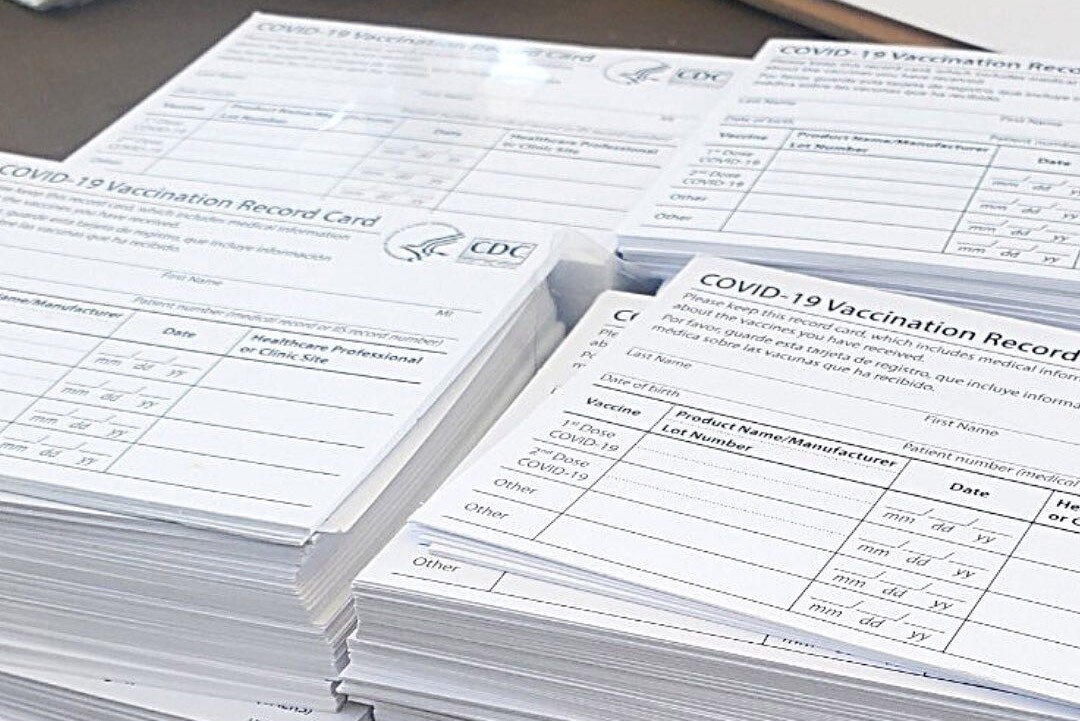 COVID-19 Vaccination Record Card
CDC
Product Name/Ma
Lot Number
Date
Healthcare Professional
or Clinic Site
COVID-19 Vaccination Reco
Last Name
First Name
Date of birth
Patient number
Vaccine
Product Name/Manufacturer
Lot Number
Date
1st Dose
COVID-19
2nd Dose
COVID-19
Other
Other
mm/dd/yy
mm/dd/yy
mm/dd/yy
mm/dd/yy
COVID-19 Vaccination Record Card
se keep this record card, which includes medical information
the vaccines you have received.
guarde esta tarjeta de registro, que incluye información
las vacunas que ha recibido.
CDC
First Name
MI
Patient number (medical record or IIS record number)
ame/Manufacturer
Date
Healthcare Professional
or Clinic Site
mm/dd/yy
mm/dd/yy
mm/dd/yy
mm/dd/yy
COVID-19 Vaccination Record
Please keep this record card, which includes medical inform
about the vaccines you have received.
Por favor, guarde esta tarjeta de registro, que incluye informa
médica sobre las vacunas que ha recibido.
Last Name
First Name
Date of birth
Patient number (medical
Vaccine
Product Name/Manufacturer
Lot Number
Date
He
or C
1st Dose
COVID-19
2nd Dose
COVID-19
Other
Other
mm/dd/yy
mm/dd/yy
mm/dd/yy
mm/dd/yy
Other